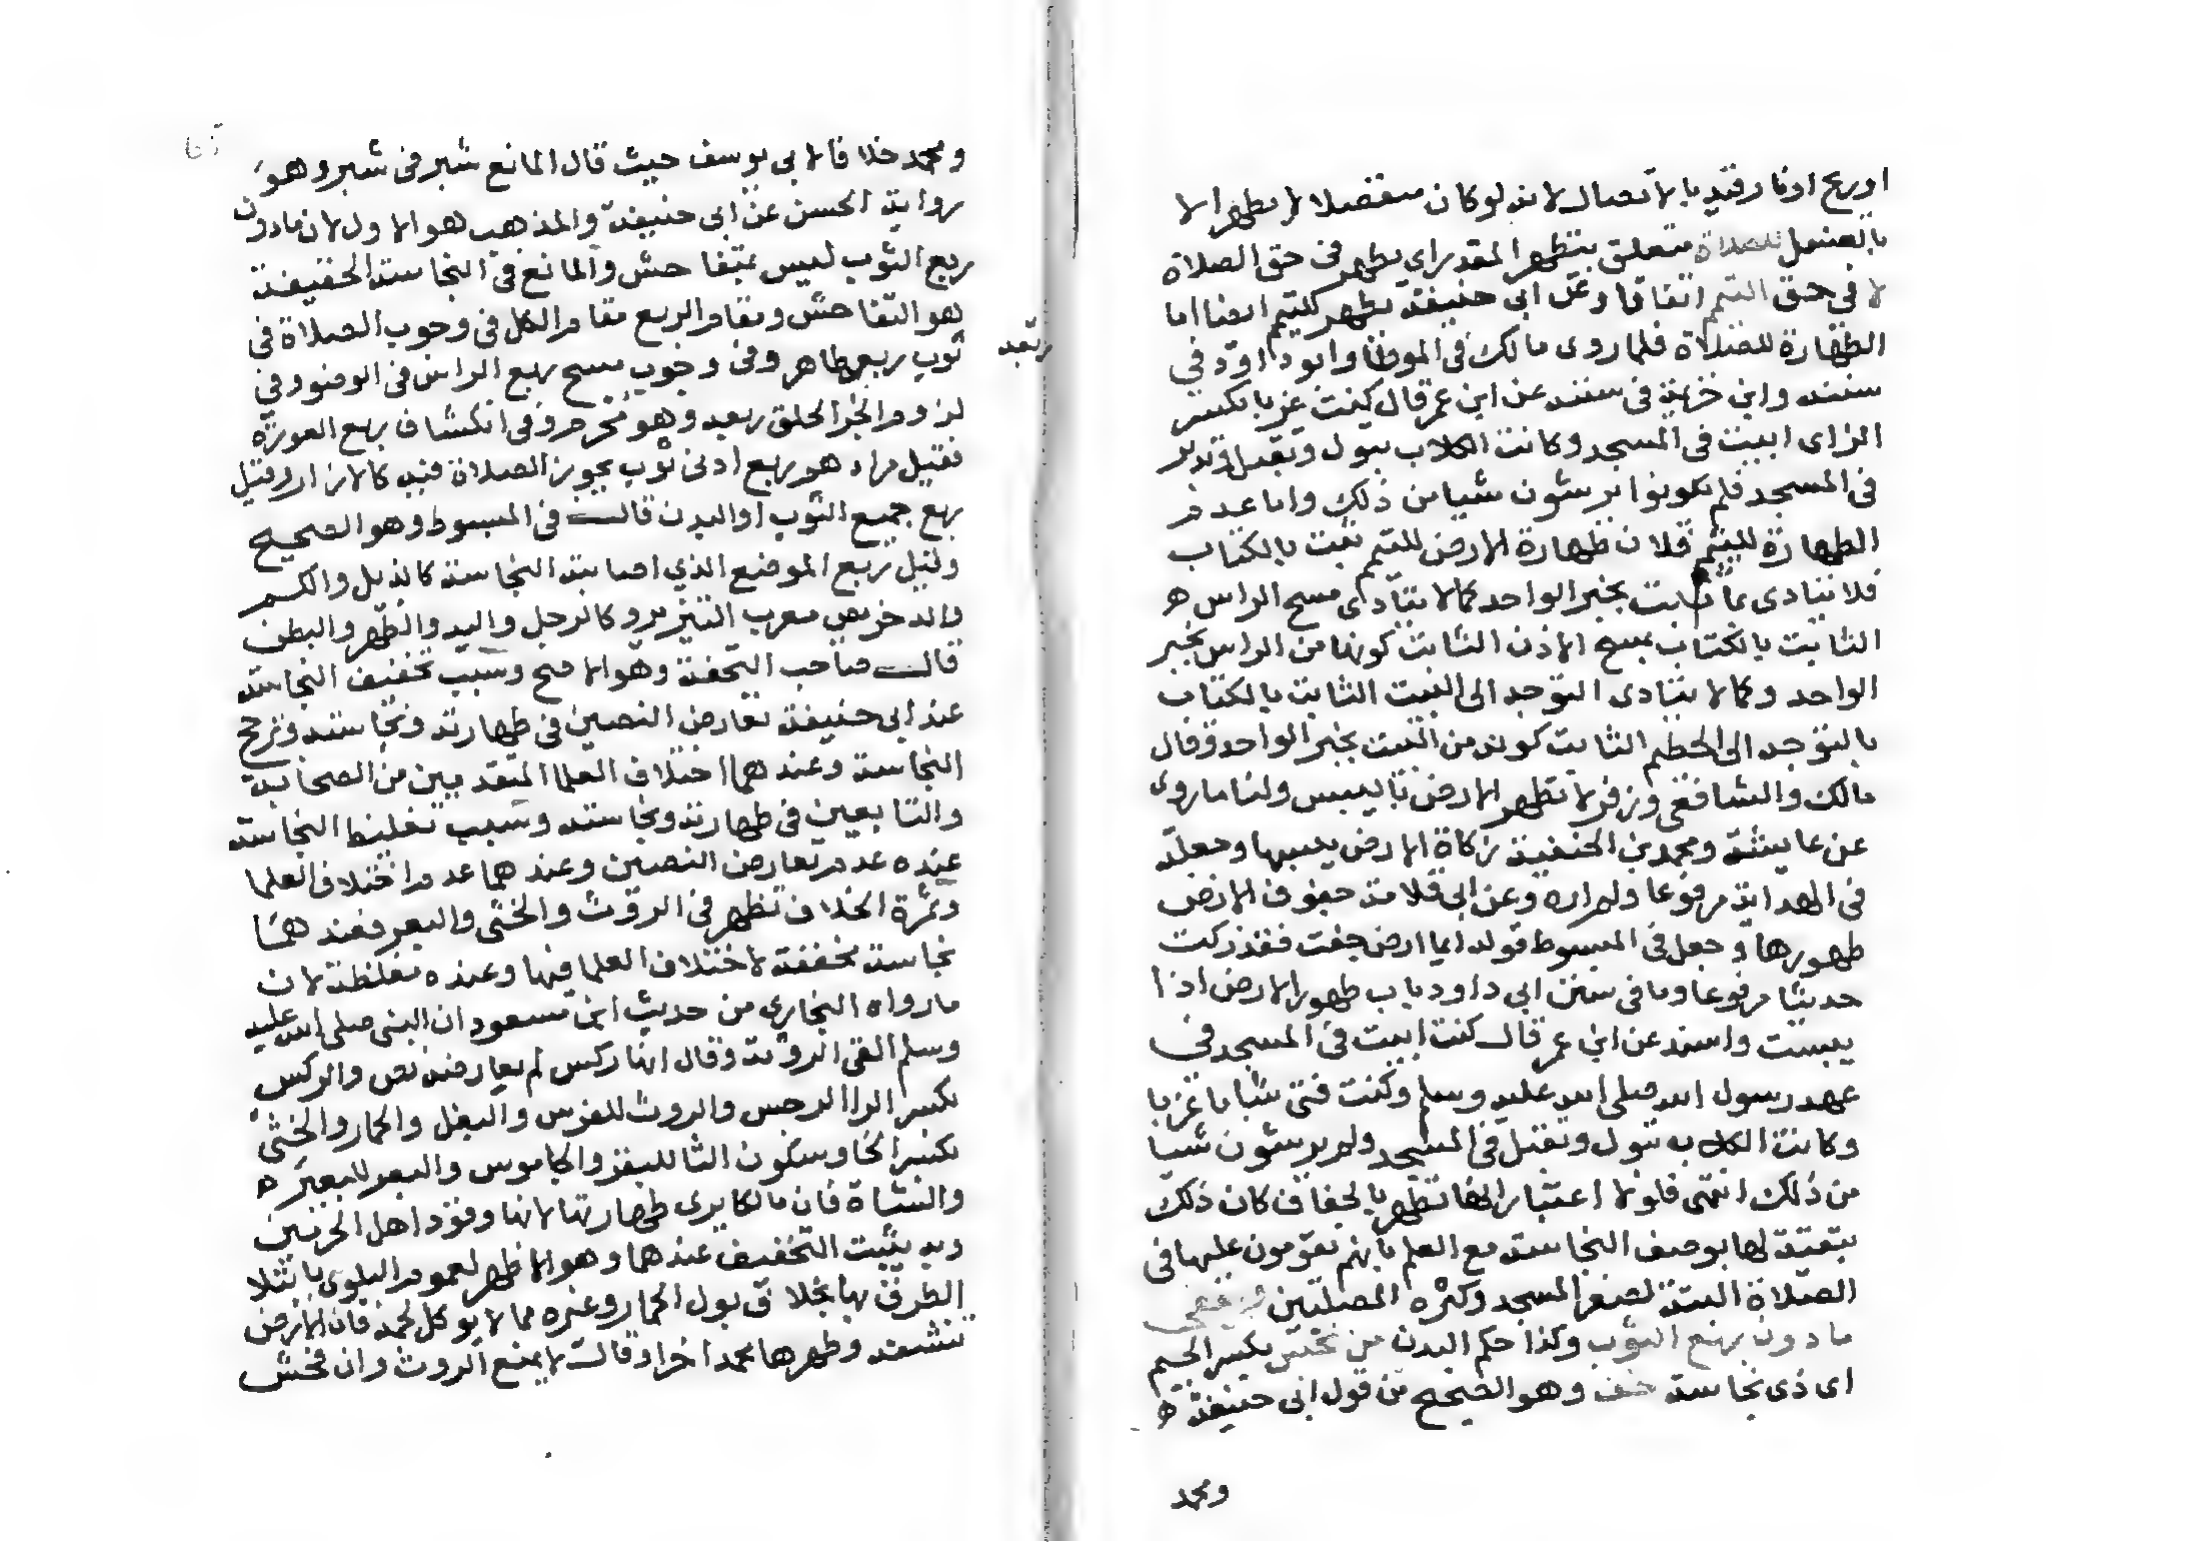 او ريح او نار وقيد بالاتصال لانه لو كان منفصلا لا يطهر الا
بالغسل للصلاة متعلق بتطهر المقدر اي يطهر في حق الصلاة
لا في حق التيمم اتفاقا وعن ابي حنيفة يطهر للتيمم ايضا اما
الطهارة للصلاة فلما روى مالك في الموطا وابو داود في
سننه وابن خزيمة في سننه عن ابن عمر قال كنت عزبا بكسر
الزاى ابيت في المسجد وكانت الكلاب تبول وتقبل وتدبر
في المسجد فلم يكونوا يرشون شيا من ذلك واما عدم
الطهارة للتيمم فلان طهارة الارض للتيمم ثبت بالكتاب
فلا تتادى بما ثبت بخبر الواحد كما لا يتادى مسح الراس ه
الثابت بالكتاب بمسح الاذن الثابت كونها من الراس بخبر
الواحد وكما لا يتادى التوجه الى البيت الثابت بالكتاب
بالتوجه الى الحطيم الثابت كونه من البيت بخبر الواحد وقال
مالك والشافعي وزفر لا تطهر الارض باليبس ولنا ما روى
عن عايشة ومحمد بن الحنفية زكاة الارض يبسها وجعله
في الهداية مرفوعا ولم اره وعن ابي قلابة جفوف الارض
طهورها وجعل في المبسوط قوله ايما ارض جفت فقد زكت
حديثا مرفوعا وما في سنن ابي داود باب طهور الارض اذا
يبست واسند عن ابن عمر قال كنت ابيت في المسجد في
عهد رسول الله صلى الله عليه وسلم وكنت فتى شابا عزبا
وكانت الكلاب تبول وتقبل في المسجد ولم يرشون شيا
من ذلك انتهى فلولا اعتبار انها تطهر بالجفاف كان ذلك
تبقية لها بوصف النجاسة مع العلم بانهم يقومون عليها في
الصلاة البتة لصغر المسجد وكثرة المصلين وعفى
ما دون ربع الثوب وكذا حكم البدن من نجس بكسر الجيم
اى ذى نجاسة خف وهو الصحيح من قول ابي حنيفة ه
ومحمد
ومحمد خلافا لابي يوسف حيث قال المانع شبر في شبر وهو
رواية الحسن عن ابي حنيفة والمذهب هو الاول لان مادون
ربع الثوب ليس بمتفاحش والمانع في النجاسة الخفيفة
هو التفاحش ويقام الربع مقام الكل في وجوب الصلاة في
ثوب ربعه طاهر وفى وجوب مسح ربع الراس في الوضوء وفي
لزوم الجزا لحلق ربعه وهو محرم وفي انكشاف ربع العورة
فقيل مراده ربع ادنى ثوب يجوز الصلاة فيه كالازار وقيل
ربع جميع الثوب او البدن قال في المبسوط وهو الصحيح
وقيل ربع الموضع الذي اصابته النجاسة كالذيل والكم
والدخريص معرب التيريز وكالرجل واليد والظهر والبطن
قال صاحب التحفة وهو الاصح وسبب تخفيف النجاسة
عند ابي حنيفة تعارض النصين في طهارته ونجاسته وترجح
النجاسة وعندهما اختلاف العلما المتقدمين من الصحابة
والتابعين في طهارته ونجاسته وسبب تغليظ النجاسة
عنده عدم تعارض النصين وعندهما عدم اختلاف العلما
وثمرة الخلاف تظهر في الروث والخثى والبعر فعندهما
نجاسة مخففة لاختلاف العلما فيها وعنده مغلظة لان
ما رواه البخاري من حديث ابن مسعود ان النبي صلى الله عليه
وسلم القى الروثة وقال انها ركس لم يعارضه نص والركس
بكسر الرا الرجس والروث للفرس والبغل والحمار والخثي
بكسر الخا وسكون الثا للبقر والجاموس والبعر للبعير ه
والشاة فان مالكا يرى طهارتها لانها وقود اهل الحرمين
وبه يثبت التخفيف عندهما وهو الاظهر لعموم البلوى بامتلا
الطرق بها بخلاف بول الحمار وغيره مما لا يوكل لحمه فان الارض
تنشفه وطهرها محمد اخرا وقال لا يمنع الروث وان فحش